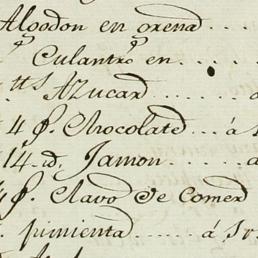 Algodon en orena
Culantro en
tts Azucar a
4 p. Chocolate a
14 id. Jamon a
p. Clavo de Comer
pimienta á